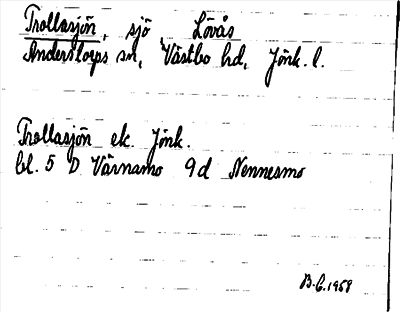 Trollasjön, sjö, Lövås
Anderstorps sn, Västbo hd, Jönk. l.
Trollasjön ek. Jönk.
bl. 5 D Värnamo 9d Nennesmo
B.G. 1968